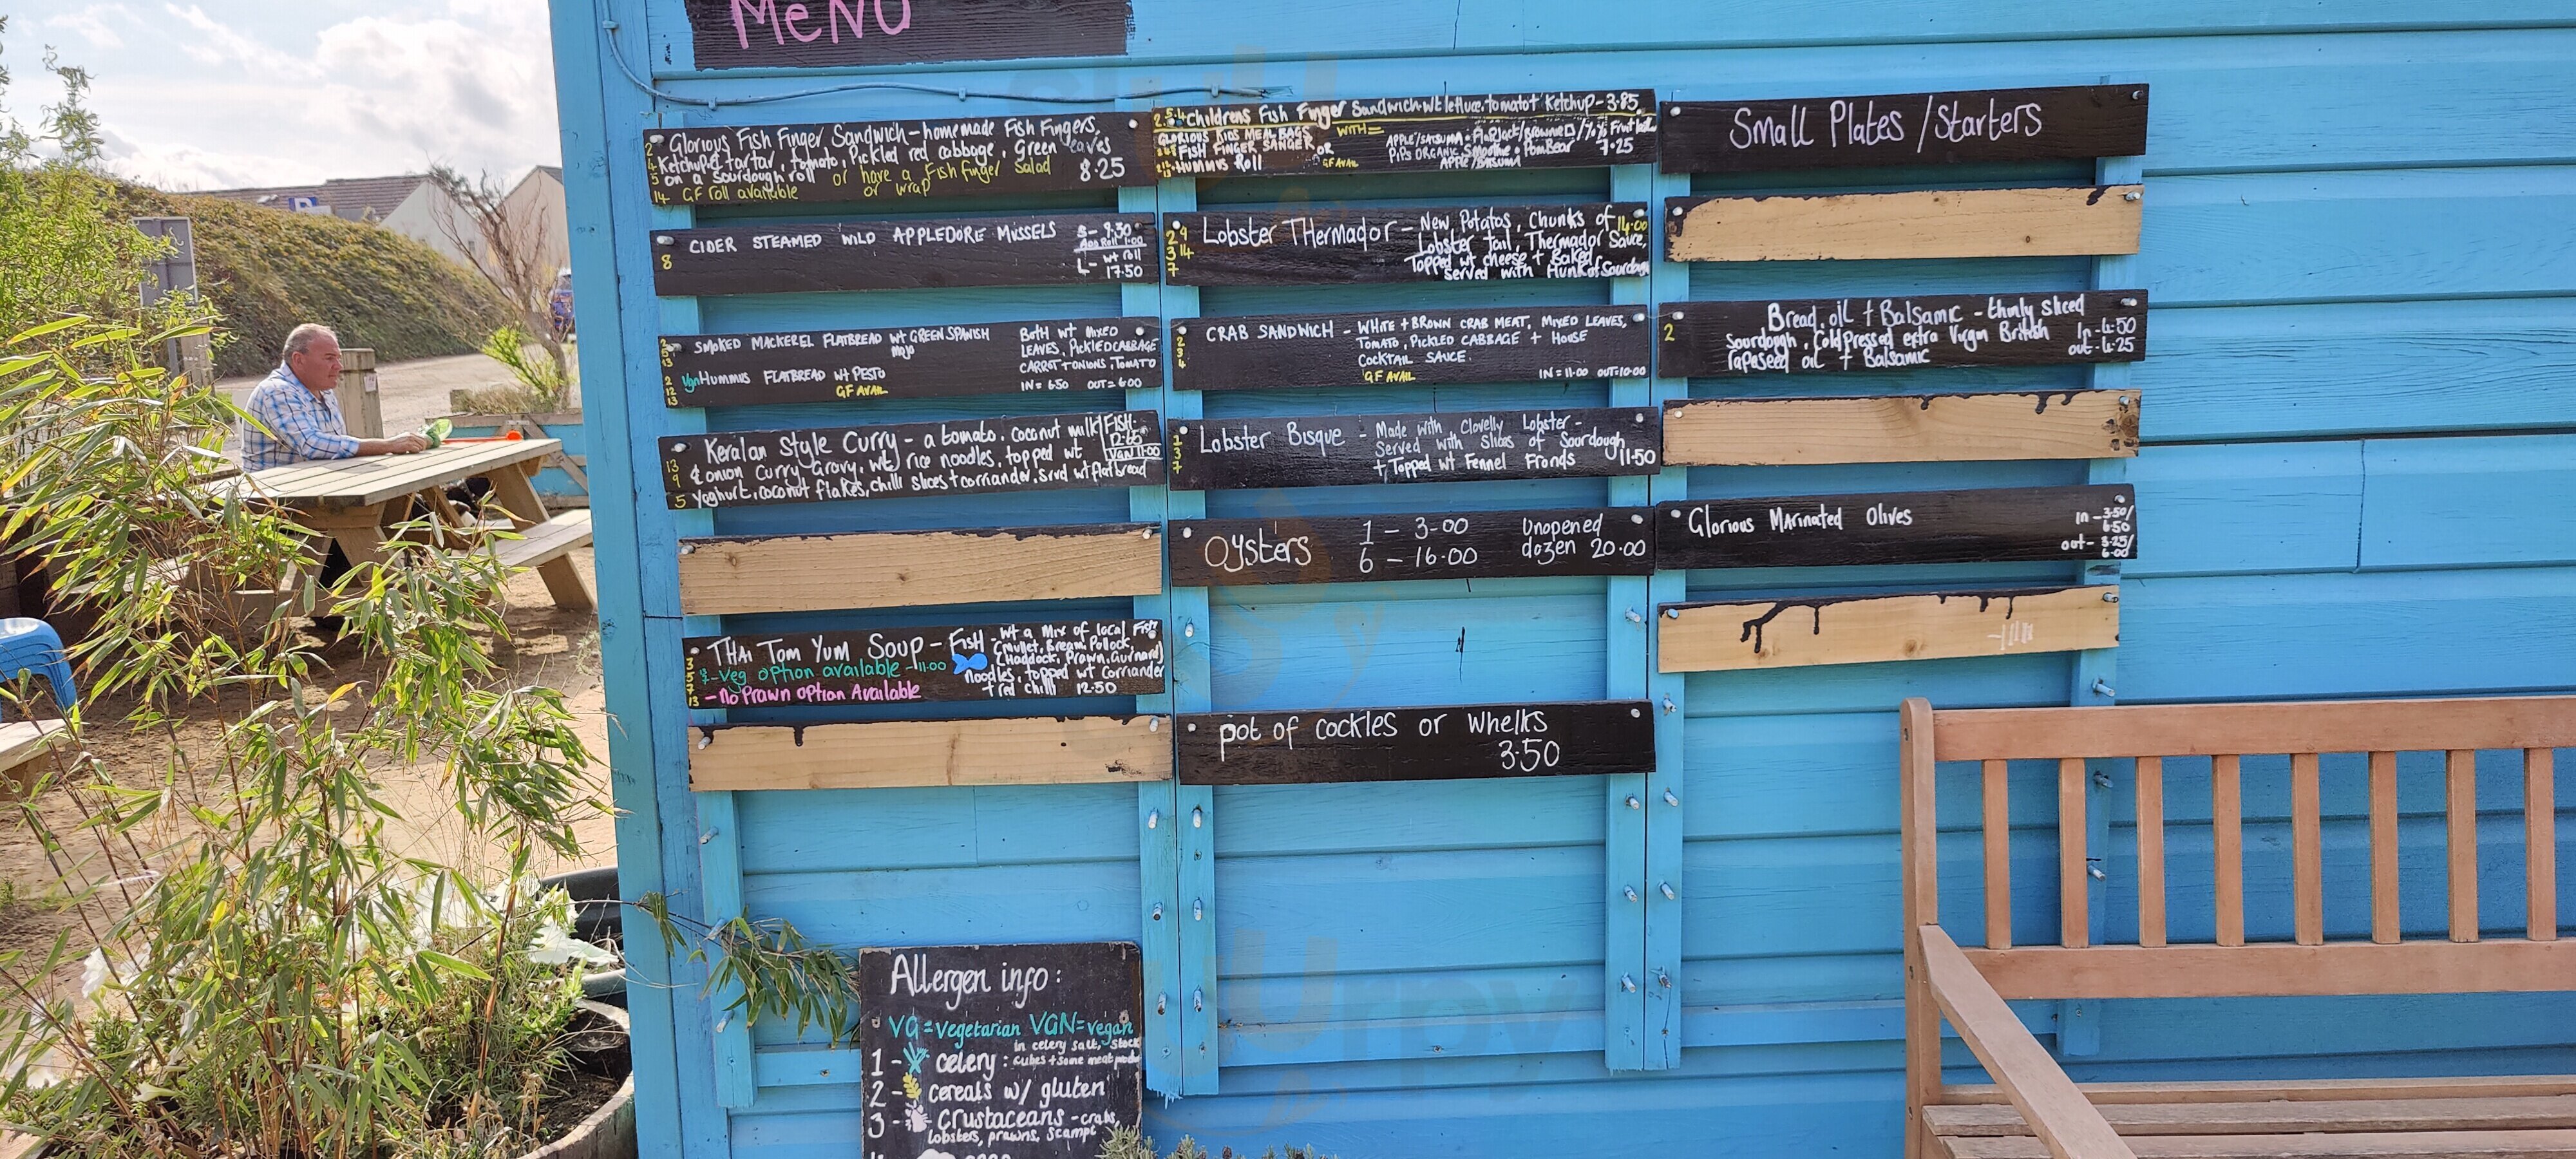 MENU
Glorious Fish Finger Sandwich - homemade Fish Fingers,
Ketchup, tartar, tomato, Pickled red cabbage, Green leaves
on a Sourdough roll or have a Fish finger Salad 8.25
GF roll available or wrap
2
5
14
CIDER STEAMED WILD APPLEDORE MUSSELS
S - 9.50
Add Roll 1.00
L - wt roll
17.50
8
SMOKED MACKEREL FLATBREAD wt GREEN SPANISH
Mojo
Vgn HUMMUS FLATBREAD wt PESTO
GF AVAIL
BOTH wt MIXED
LEAVES, PICKLED CABBAGE
CARROT + ONIONS, TOMATO
IN = 6.50 OUT = 6.00
2
12
13
Keralan Style Curry - a tomato, coconut milk
& onion Curry Gravy, wt rice noodles, topped wt
Yoghurt, coconut flakes, chilli slices + corriander, Srvd wt flatbread
FISH-
12.65
VGN 11.00
13
9
5
THAI TOM YUM SOUP - FISH - wt a Mix of local Fish
(mullet, Bream, Pollock,
Haddock, Prawn, Gurnard)
- Veg option available - 11.00
Noodles, topped wt Corriander
+ red chilli 12.50
- No Prawn option Available
3
5
7
13
Childrens Fish Finger Sandwich wt lettuce, tomato + Ketchup - 3.85
GLORIOUS KIDS MEAL BAGS WITH =
FISH FINGER SANGER OR
HUMMUS Roll GF AVAIL
APPLE/SATSUMA
PIPS ORGANIC Smoothie + PomBear 7.25
APPLE/SATSUMA
Lobster Thermador - New Potatos, Chunks of 14.00
Lobster tail, Thermador Sauce,
Topped wt cheese + Baked
Served with Hunk of Sourdough
2 9
3 14
7
CRAB SANDWICH - WHITE + BROWN CRAB MEAT, MIXED LEAVES,
TOMATO, PICKLED CABBAGE + HOUSE
COCKTAIL SAUCE.
GF AVAIL IN = 11.00 OUT = 10.00
2
3
4
Lobster Bisque - Made with Clovelly Lobster -
Served with slices of Sourdough
+ Topped wt Fennel Fronds 11.50
1
3
7
Oysters 1 - 3.00 Unopened
6 - 16.00 dozen 20.00
pot of cockles or whelks
3.50
Small Plates / Starters
Bread, oil + Balsamic - thinly sliced
Sourdough, Cold Pressed extra Virgin British
rapeseed oil + Balsamic
In - 4.50
out - 4.25
2
Glorious Marinated Olives
in - 3.50/
6.50
out - 3.25/
6.00
Allergen info:
VG = vegetarian VGN = vegan
in celery salt, stock
1 - celery : cubes + some meat
2 - cereals w/ gluten
3 - crustaceans - crabs,
lobsters, prawns, scampi